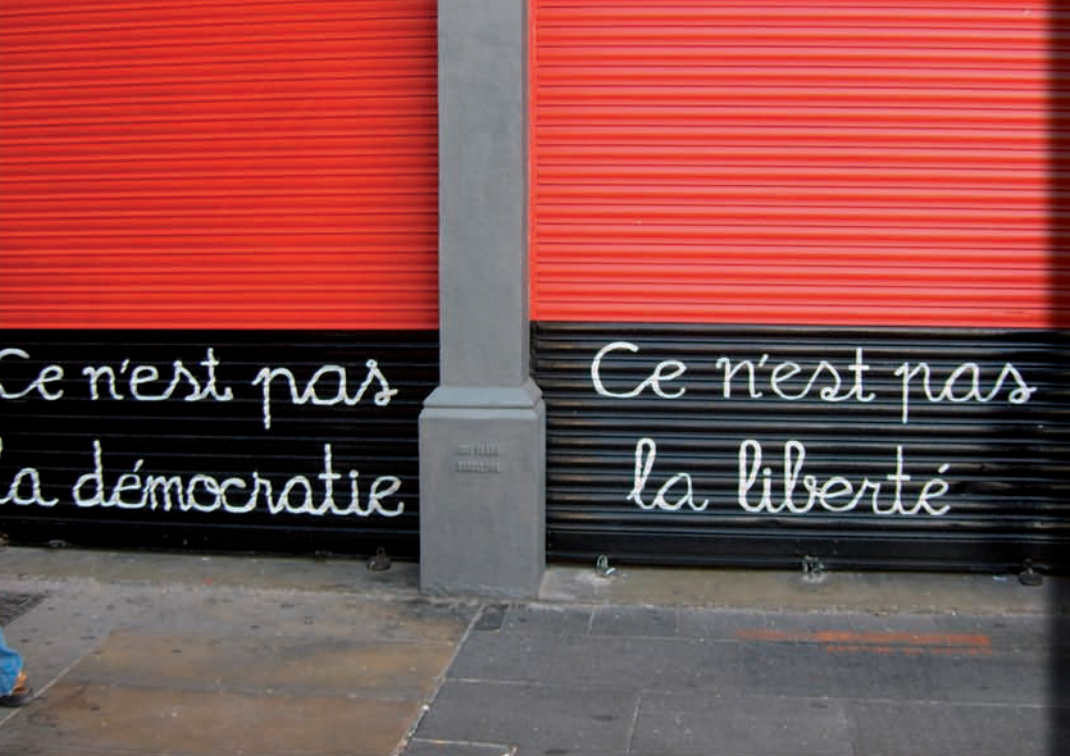 Ce n'est pas
la démocratie
Ce n'est pas
la liberté